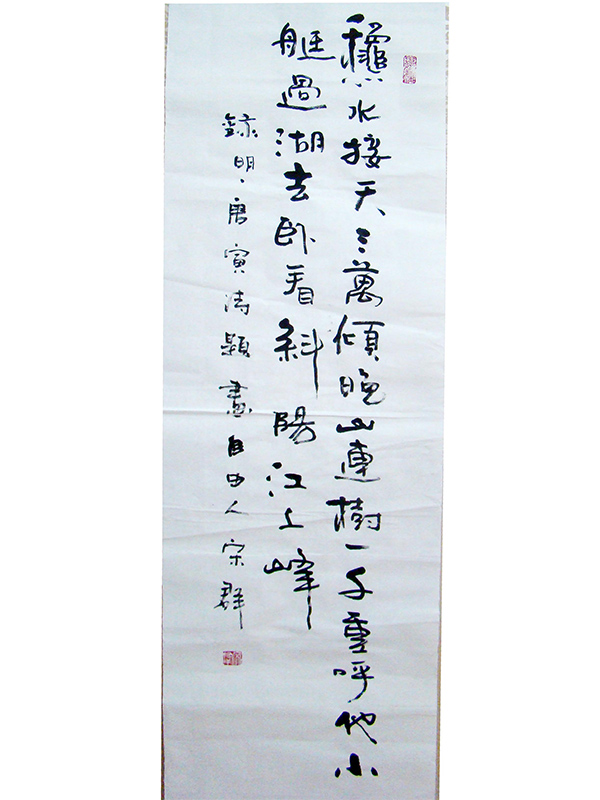 龝水接天三萬傾晚山連樹一千重呼他小
艇過湖去卧看斜陽江上峰
錄明、唐寅詩題畫自由人宋群